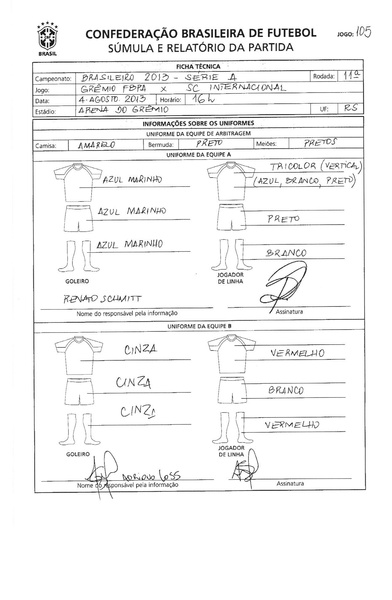 CONFEDERAÇÃO BRASILEIRA DE FUTEBOL
JOGO: 105
SÚMULA E RELATÓRIO DA PARTIDA
BRASIL
FICHA TÉCNICA
Campeonato: BRASILEIRO 2013 - SÉRIE A Rodada: 11ª
Jogo: GRÊMIO FBPA X SC INTERNACIONAL
Data: 4-AGOSTO 2013 Horário: 16h
Estádio: ARENA DO GRÊMIO UF: RS
INFORMAÇÕES SOBRE OS UNIFORMES
UNIFORME DA EQUIPE DE ARBITRAGEM
Camisa: AMARELO Bermuda: PRETO Meiões: PRETOS
UNIFORME DA EQUIPE A
AZUL MARINHO TRICOLOR (VERTICAL)
(AZUL, BRANCO, PRETO)
AZUL MARINHO PRETO
AZUL MARINHO BRANCO
GOLEIRO JOGADOR DE LINHA
RENATO SCHMITT
Nome do responsável pela informação Assinatura
UNIFORME DA EQUIPE B
CINZA VERMELHO
CINZA BRANCO
CINZA VERMELHO
GOLEIRO JOGADOR DE LINHA
ADRIANO LOSS
Nome do responsável pela informação Assinatura